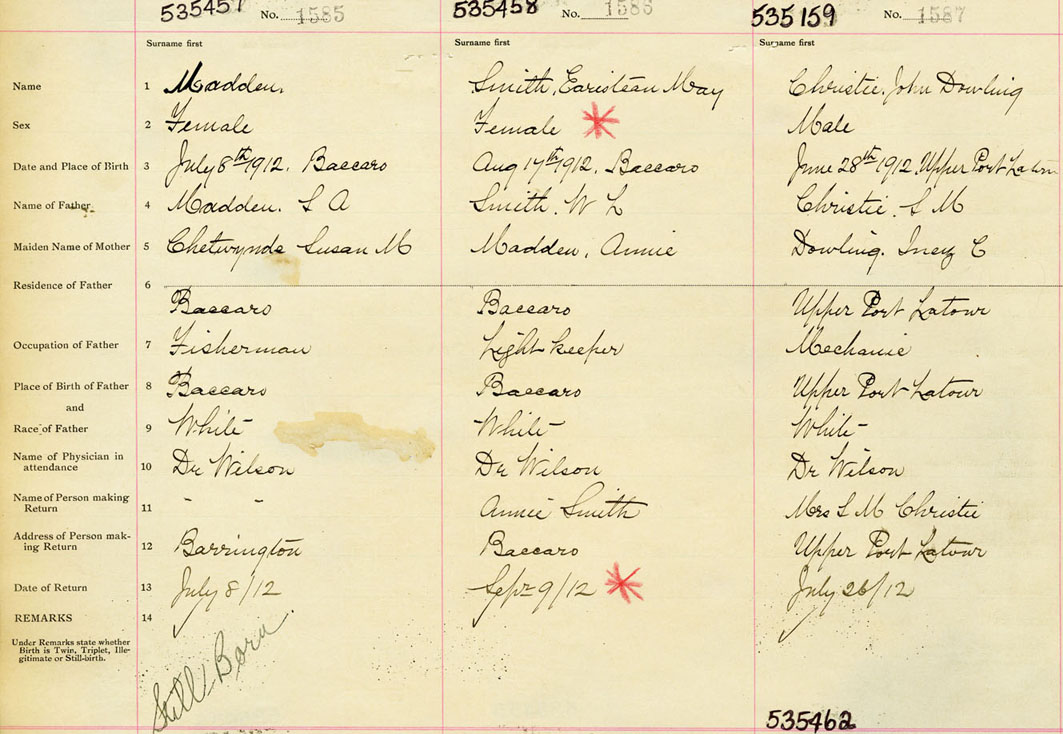 535457 No. 1585 535458 No. 1586 535159 No. 1587
Surname first Surname first Surname first
Name 1 Madden. Smith, Earistean May Christie, John Dowling
Sex 2 Female Female Male
Date and Place of Birth 3 July 8th 1912. Baccaro Aug 17th 1912. Baccaro June 28th 1912. Upper Port Latour
Name of Father 4 Madden. S A Smith. W L Christie. S M
Maiden Name of Mother 5 Chetwynde Susan M Madden, Annie Dowling. Inez C
Residence of Father 6
Baccaro Baccaro Upper Port Latour
Occupation of Father 7 Fisherman Light keeper Mechanic
Place of Birth of Father 8 Baccaro Baccaro Upper Port Latour
and
Race of Father 9 White White White
Name of Physician in
attendance 10 Dr Wilson Dr Wilson Dr Wilson
Name of Person making
Return 11 " " Annie Smith Mrs S M Christie
Address of Person mak-
ing Return 12 Barrington Baccaro Upper Port Latour
Date of Return 13 July 8/12 Sept 9/12 July 26/12
REMARKS 14
Under Remarks state whether
Birth is Twin, Triplet, Ille-
gitimate or Still-birth.
Still Born
535462